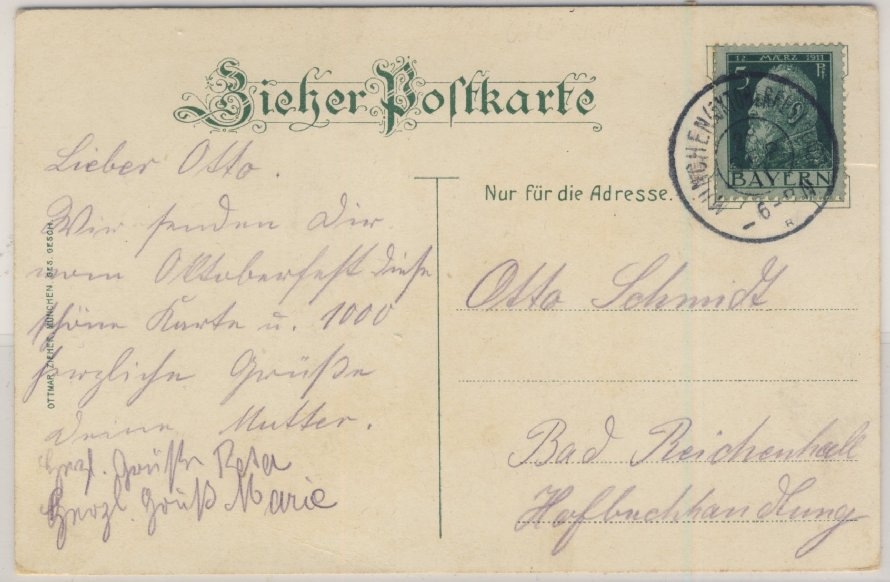 Zieher Postkarte
12 MÄRZ 1911
5 Pf
BAYERN
MÜNCHEN
6-7 N
Nur für die Adresse.
OTTMAR ZIEHER, MÜNCHEN. GES. GESCH.
Lieber Otto.
Wir senden Dir
vom Oktoberfest diese
schöne Karte u. 1000
herzliche Grüße
Deine Mutter.
Herzl. Grüße Resa
Herzl. Gruß Marie
Otto Schmidt
Bad Reichenhall
Hofbuchhandlung